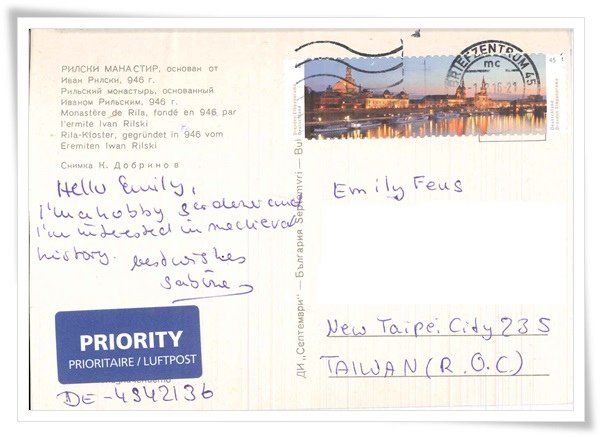 РИЛСКИ МАНАСТИР, основан от
Иван Рилски, 946 г.
Рильский монастырь, основанный
Иваном Рильским, 946 г.
Monastère de Rila, fondé en 946 par
l'ermite Ivan Rilski
Rila-Kloster, gegründet in 946 vom
Eremiten Iwan Rilski
Снимка К. Добринов
Hello Emily,
I'm a hobby gardener and
I'm interested in medieval
history.
best wishes
Sabine
PRIORITY
PRIORITAIRE / LUFTPOST
DE-4942136
ДИ „Септември" — България Septemvri — Bul
BRIEFZENTRUM 45
mc
16-21
45
Deutschland
Emily Feus
New Taipei City 235
TAIWAN (R.O.C.)